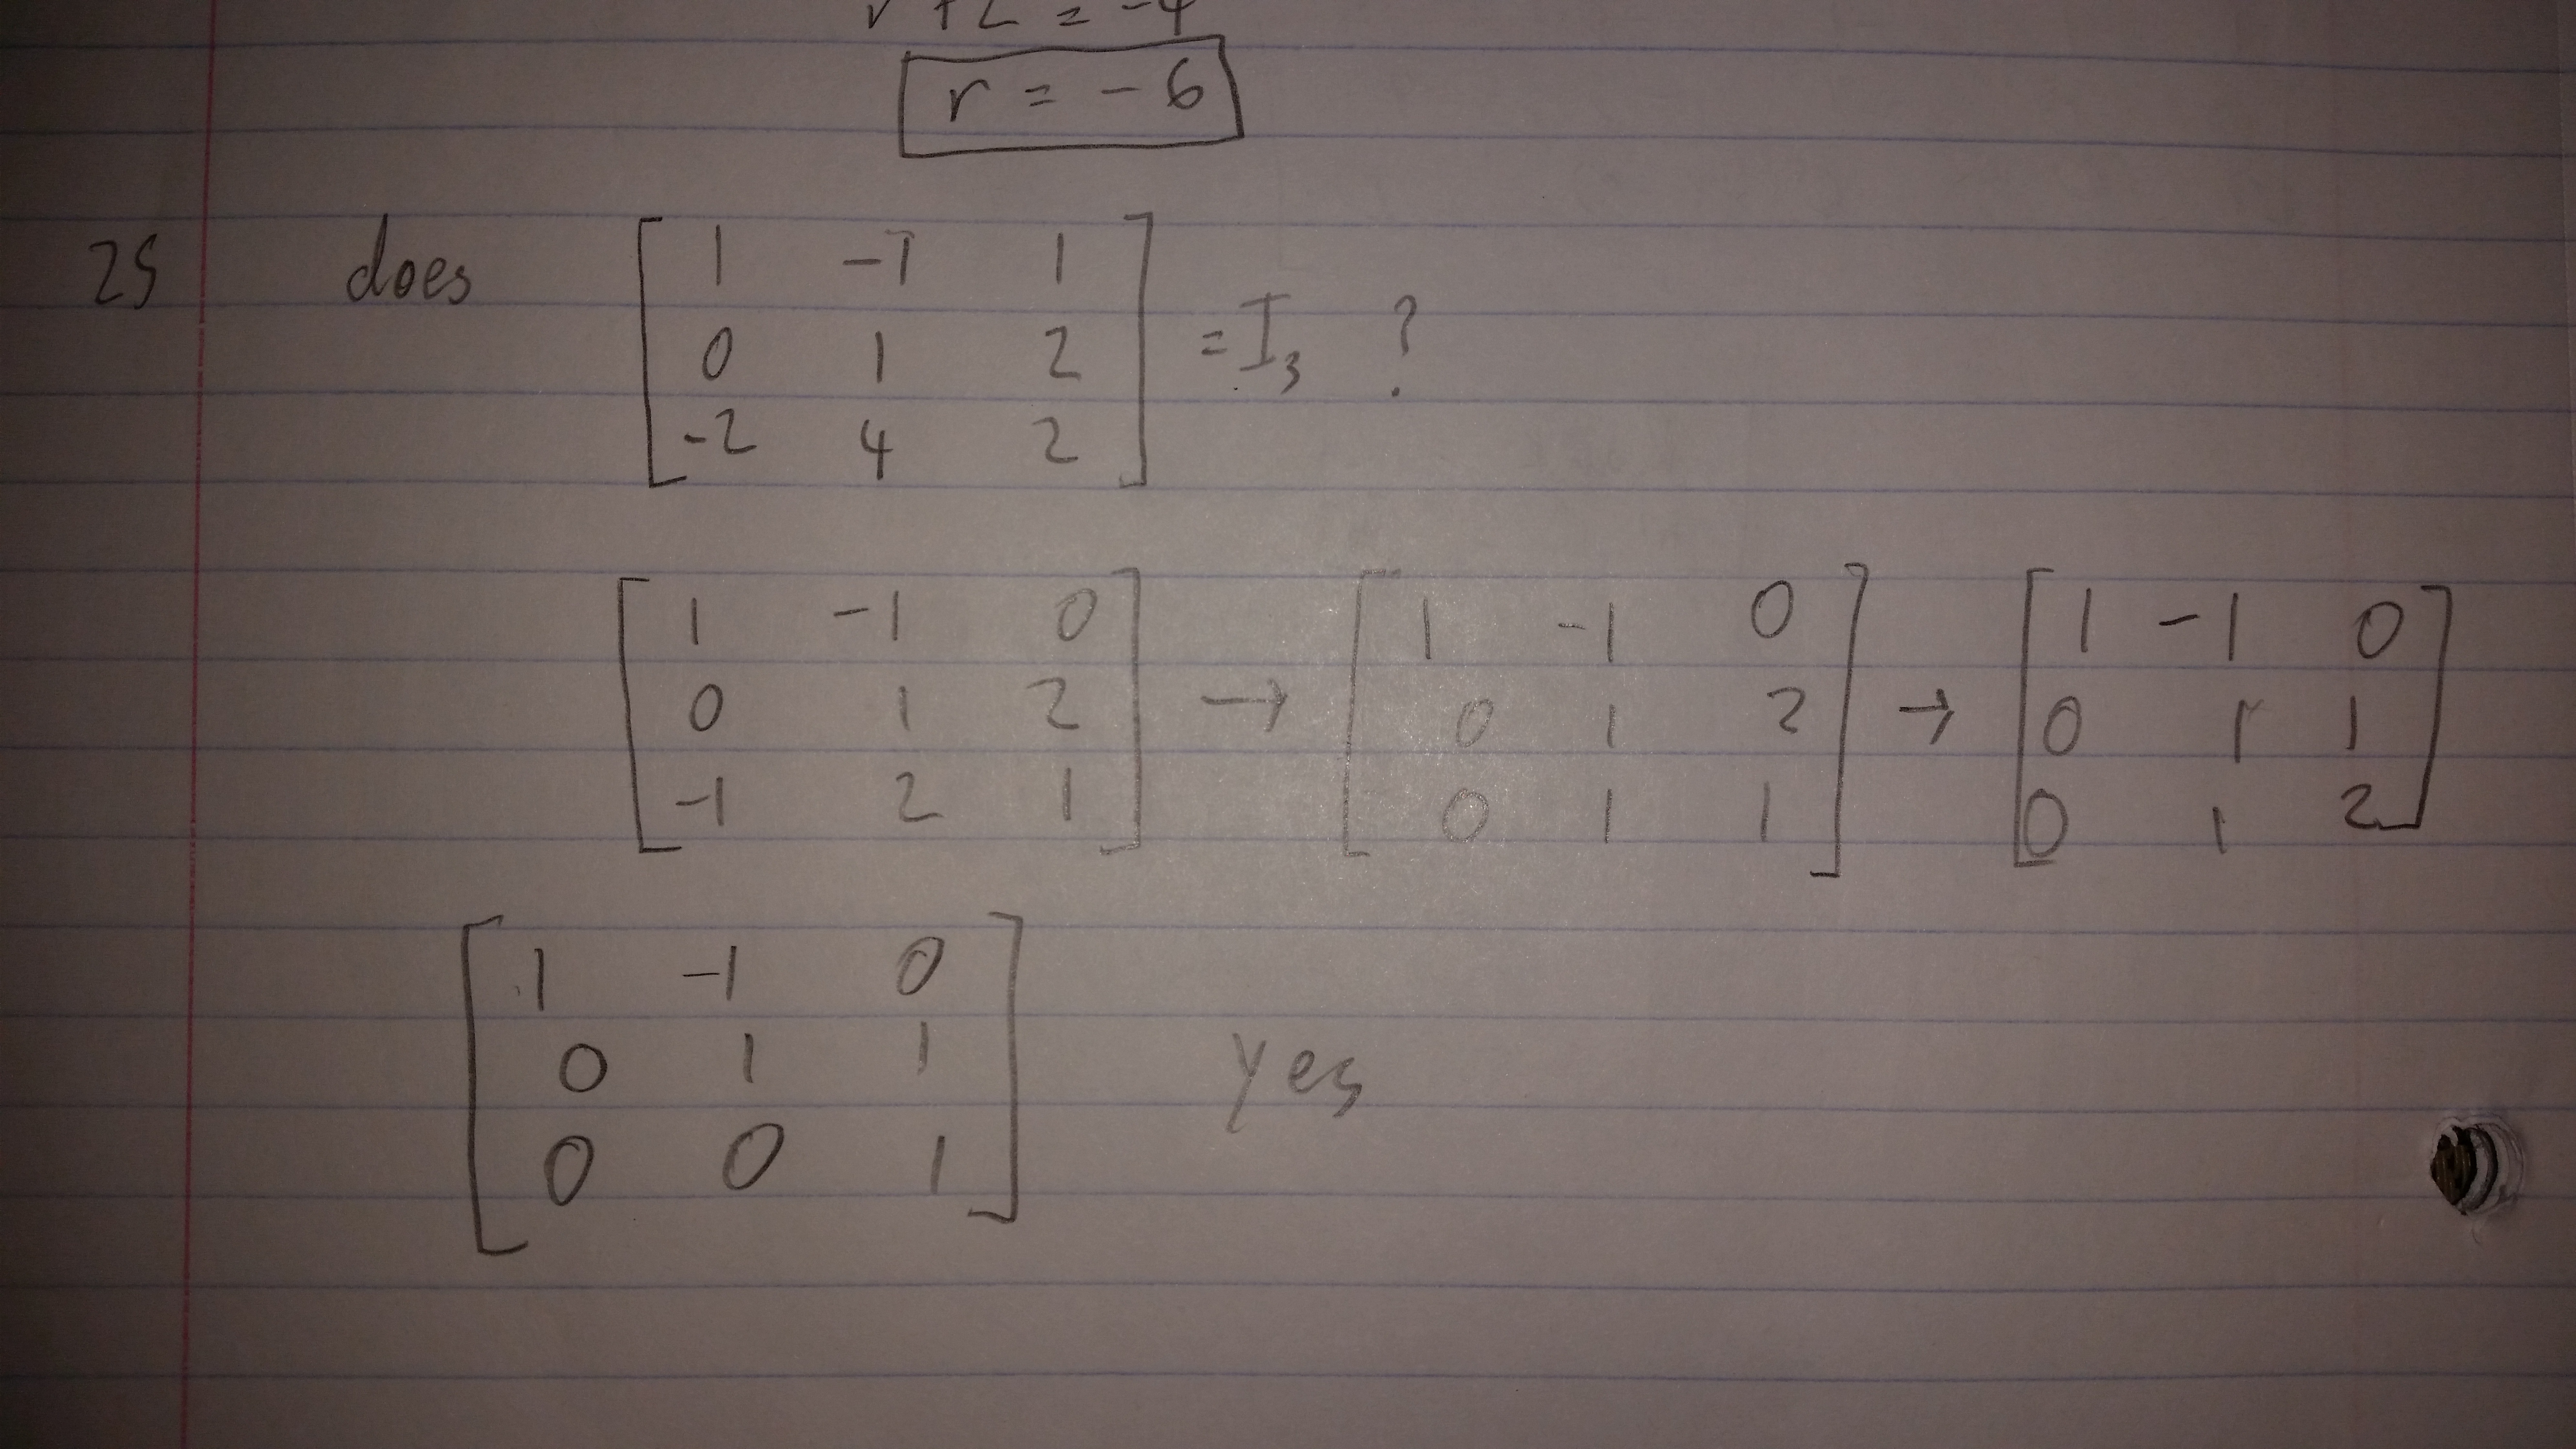 r + 2 = -4
r = -6
25 does [ 1 -1 1 ; 0 1 2 ; -2 4 2 ] = I₃ ?
[ 1 -1 0 ; 0 1 2 ; -1 2 1 ] → [ 1 -1 0 ; 0 1 2 ; 0 1 1 ] → [ 1 -1 0 ; 0 1 1 ; 0 1 2 ]
[ 1 -1 0 ; 0 1 1 ; 0 0 1 ] yes